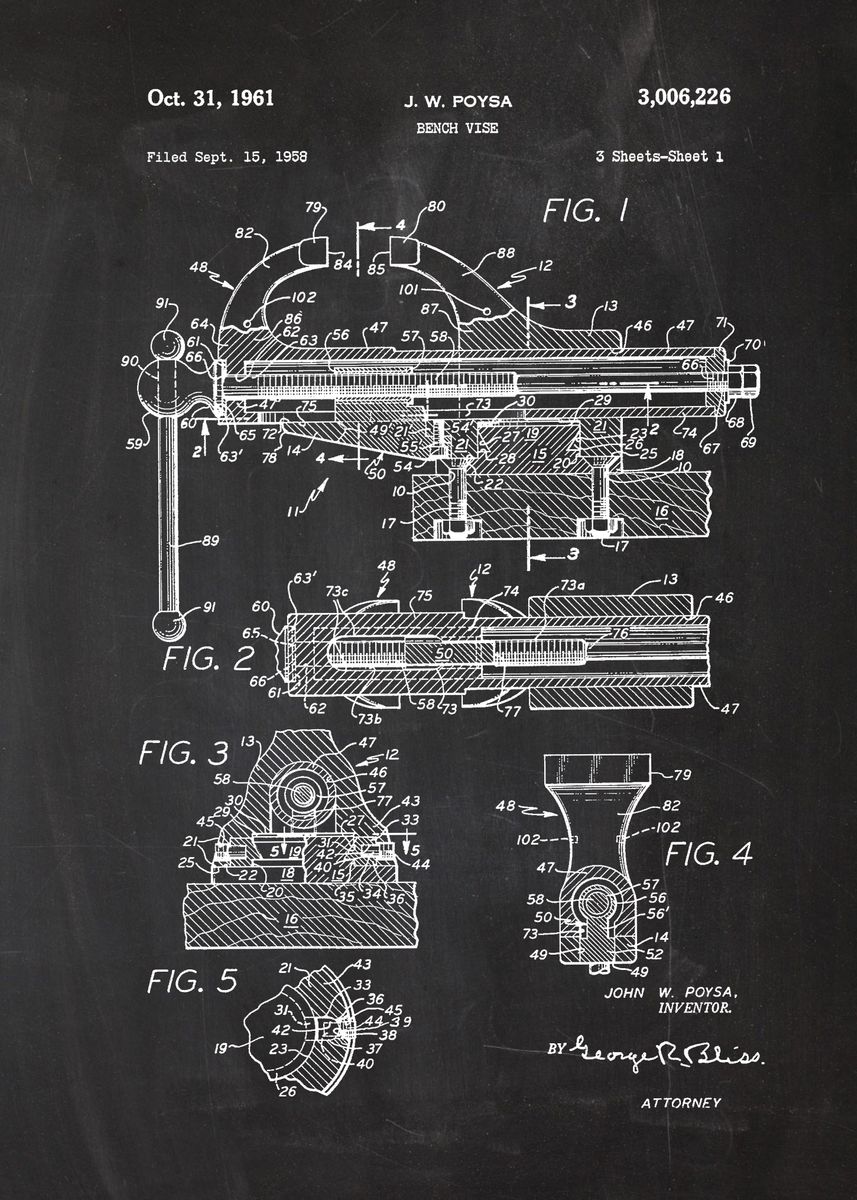 Oct. 31, 1961
J. W. POYSA
3,006,226
BENCH VISE
Filed Sept. 15, 1958
3 Sheets-Sheet 1
FIG. 1
79 80 4
82 88
48 84 85 12
102 101 3
91 86 87 13
64 62 56 47 57 58 46 47 71
61 63 70'
66 66
90
60 47 75 73 30 29 2 68
59 65 72 49 21 54 27 19 21 23 74 69
63' 14 55 21 26 67
2 78 4 50 54 28 15 20 25 18
22 10
11 10 16
17 17
89 3
63' 48 12 13
73c 75 74 73a 46
60
91 65 50 76
FIG. 2
66
61 62 73b 58 73 77 47
FIG. 3
13 47 12
58 46
57
29 77 43
30 27 33
45 31
21 5 19 42 5
25 40 44
22 20 18 15 35 34 36
16
79
48 82
102 102
FIG. 4
47
57
58 56
50 56'
73 14
49 52
49
FIG. 5
21 43
33
31 36 45
42 44 39
38
19 23 37
40
26
JOHN W. POYSA,
INVENTOR.
BY George R. Bliss.
ATTORNEY